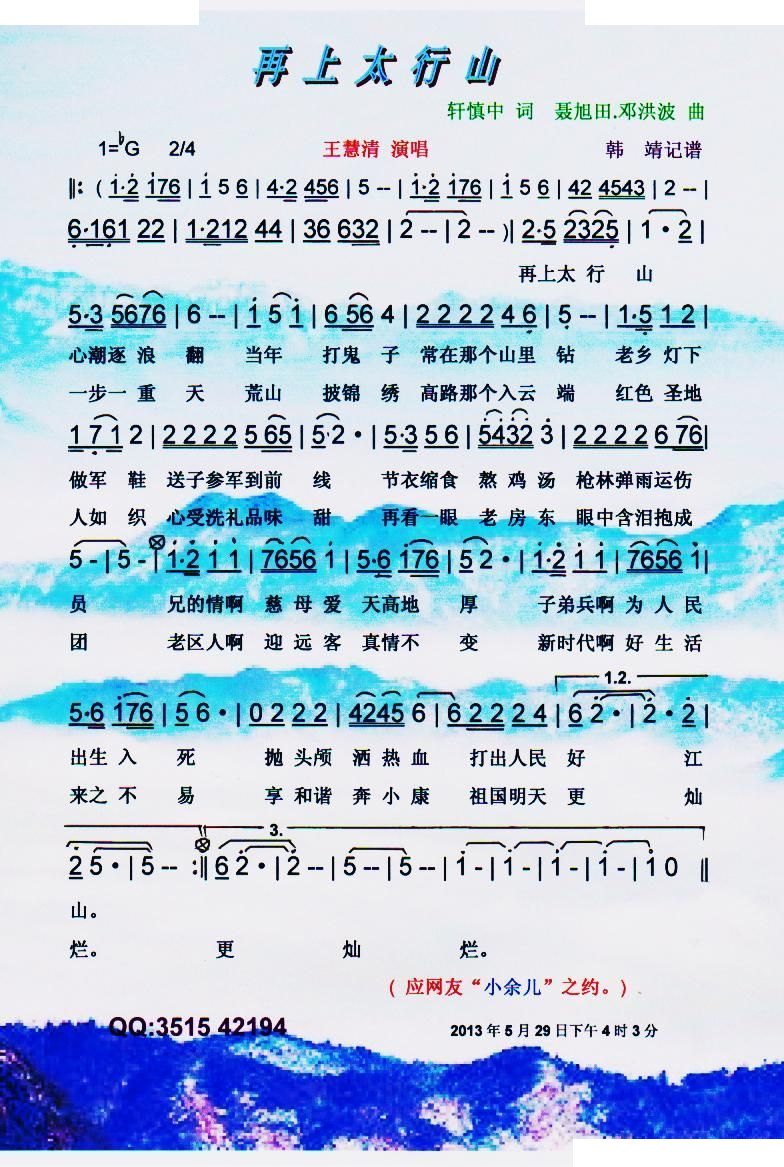 再上太行山
轩慎中 词 聂旭田.邓洪波 曲
1=♭G 2/4 王慧清 演唱 韩 靖记谱
‖: ( 1·2 176 | 1 5 6 | 4·2 456 | 5 -- | 1·2 176 | 1 5 6 | 42 4543 | 2 -- |
6·161 22 | 1·212 44 | 36 632 | 2 -- | 2 -- )‖ 2·5 2325 | 1·2 |
再上太 行 山
5·3 5676 | 6 -- | 1 5 1 | 6 56 4 | 2 2 2 2 4 6 | 5 -- | 1·5 1 2 |
心潮逐 浪 翻 当年 打鬼 子 常在那个山里 钻 老乡 灯下
一步一 重 天 荒山 披锦 绣 高路那个入云 端 红色 圣地
1 7 1 2 | 2 2 2 2 5 65 | 5·2 · | 5·3 5 6 | 5432 3 | 2 2 2 2 6 76 |
做军 鞋 送子参军到前 线 节衣缩食 熬 鸡 汤 枪林弹雨运伤
人如 织 心受洗礼品味 甜 再看一眼 老 房 东 眼中含泪抱成
5 - | 5 - | 1·2 1 1 | 7656 1 | 5·6 176 | 5 2 · | 1·2 1 1 | 7656 1 |
员 兄的情啊 慈 母 爱 天高地 厚 子弟兵啊 为 人 民
团 老区人啊 迎 远 客 真情不 变 新时代啊 好 生 活
1.2.
5·6 176 | 5 6 · | 0 2 2 2 | 4245 6 | 6 2 2 2 4 | 6 2 · | 2 · 2 |
出生 入 死 抛 头颅 洒 热 血 打出人民 好 江
来之 不 易 享 和谐 奔 小 康 祖国明天 更 灿
3.
2 5 · | 5 -- :‖ 6 2 · | 2 -- | 5 -- | 5 -- | 1 - | 1 - | 1 - | 1 - | 1 0 ‖
山。
烂。 更 灿 烂。
( 应网友“小余儿”之约。)
QQ:3515 42194 2013 年 5 月 29 日下午 4 时 3 分